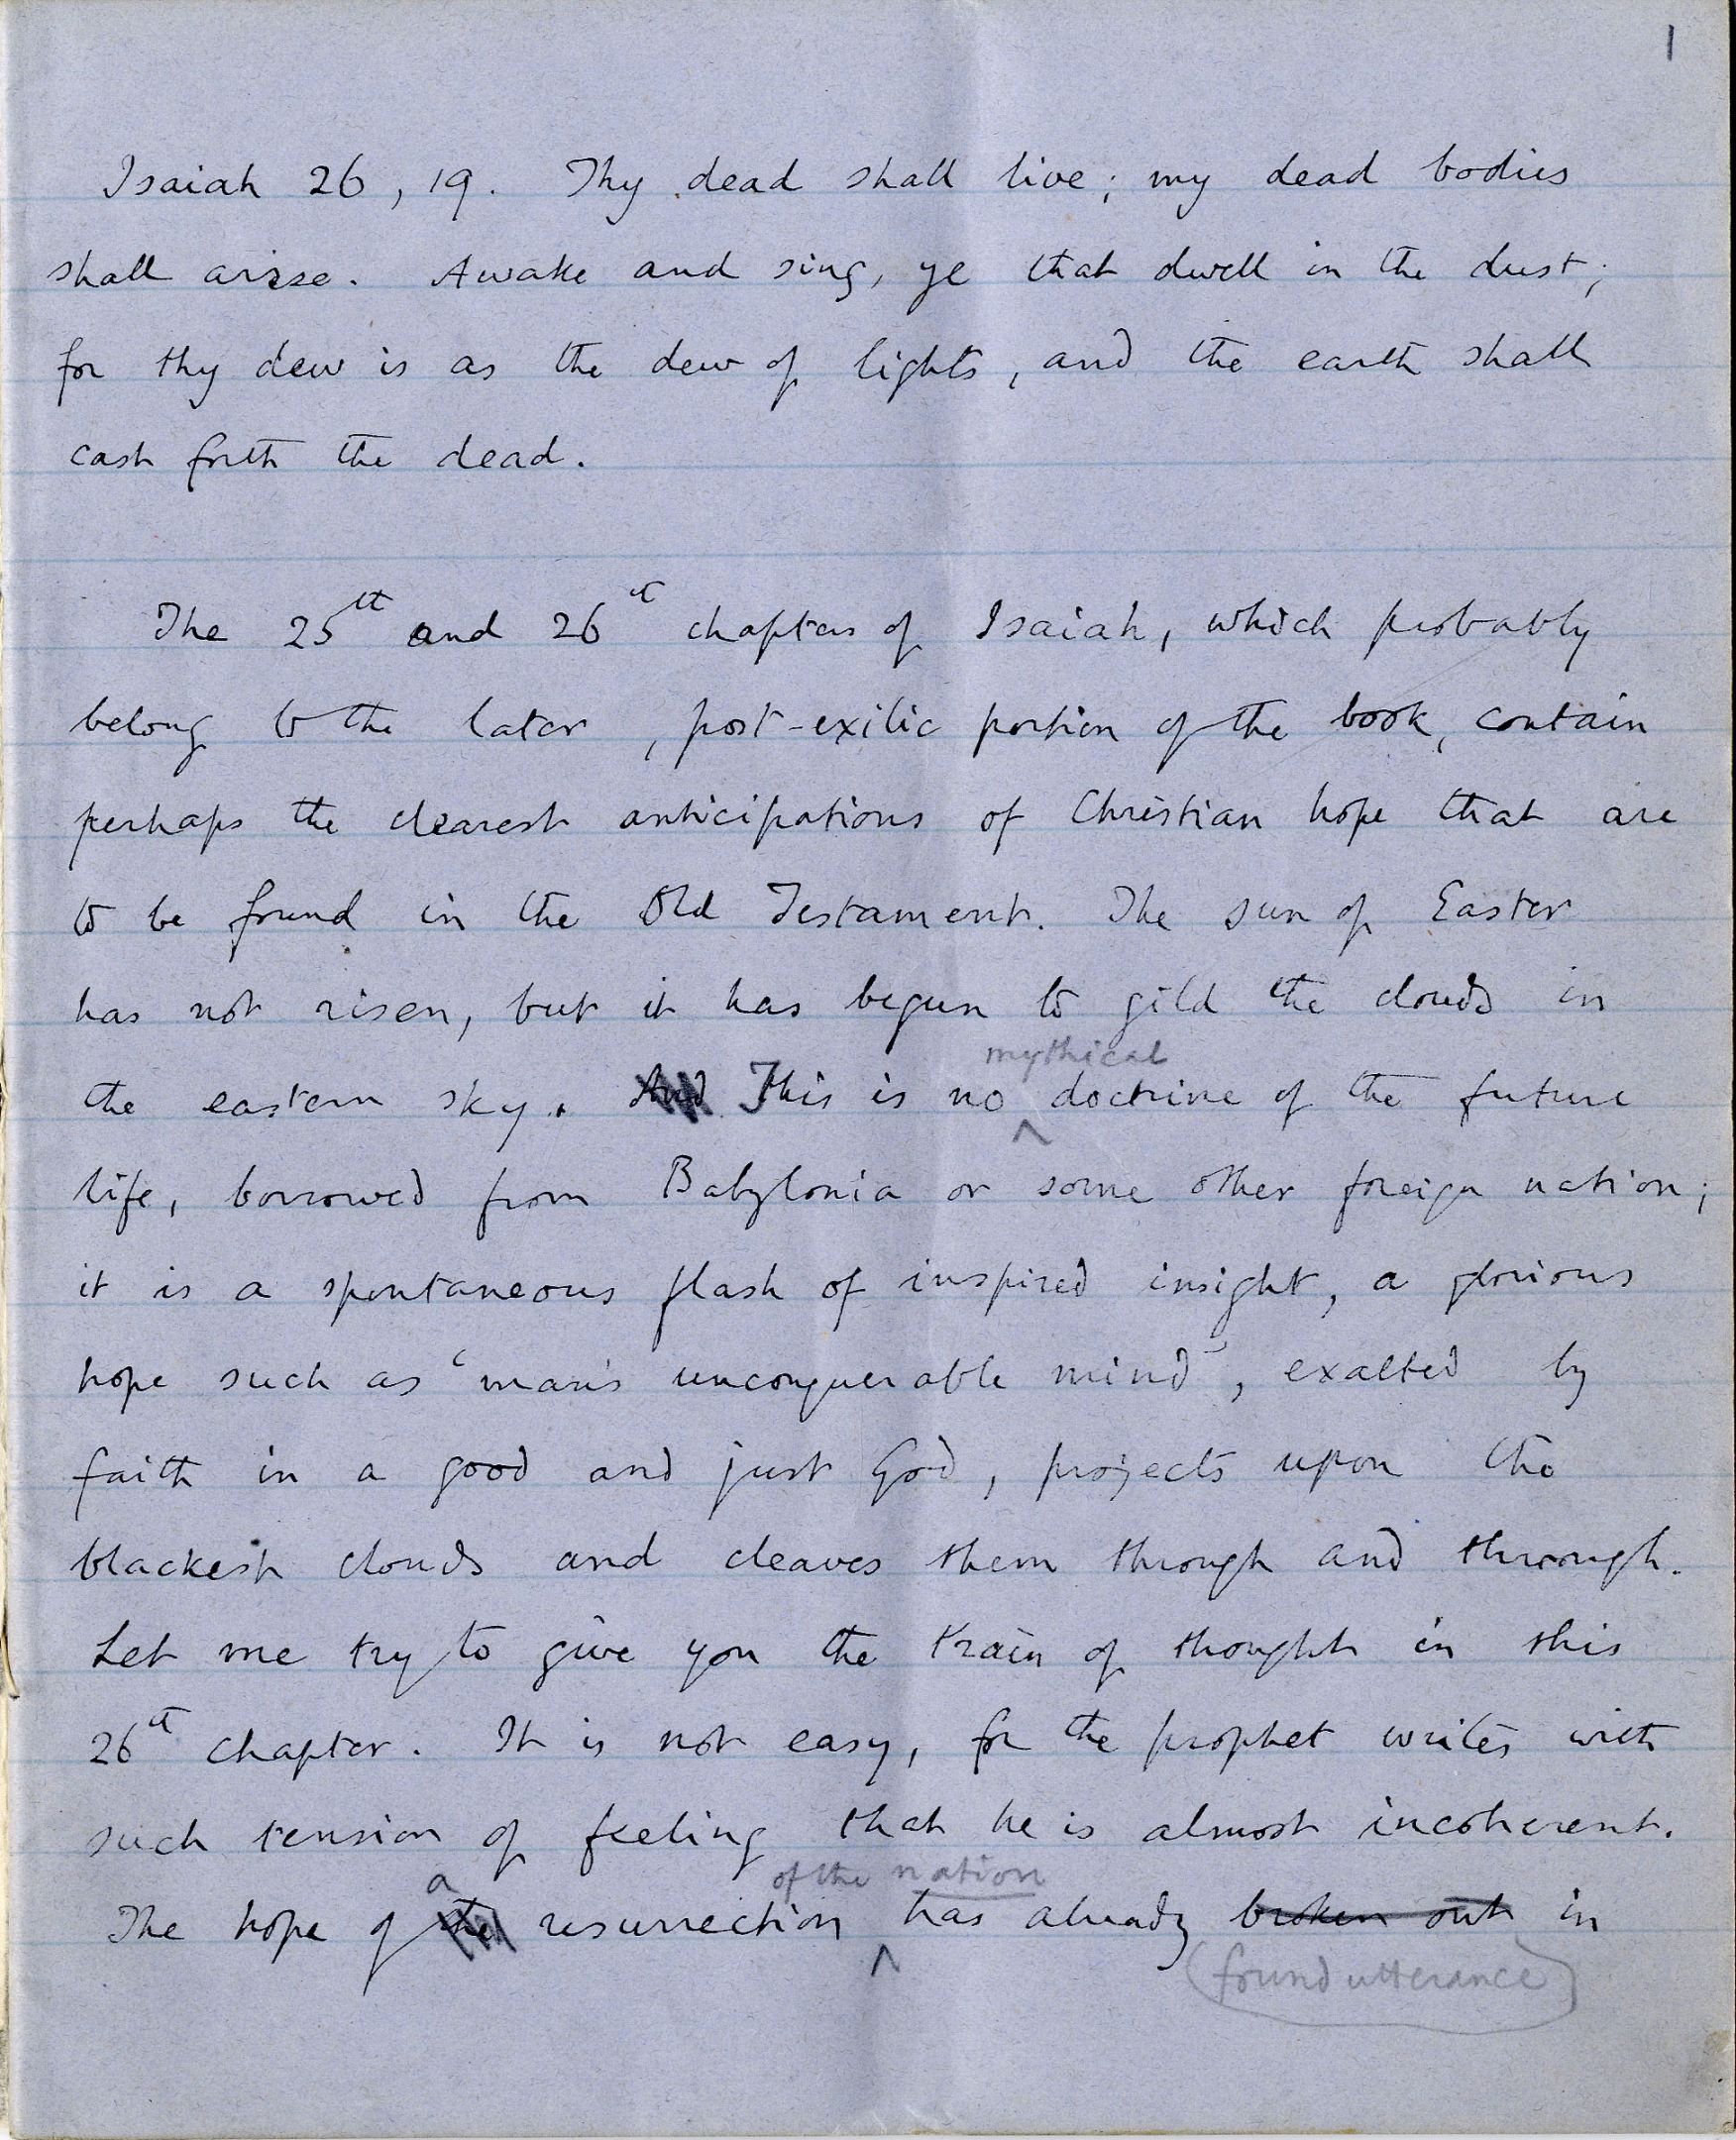 1
Isaiah 26, 19. Thy dead shall live; my dead bodies
shall arise. Awake and sing, ye that dwell in the dust;
for thy dew is as the dew of lights, and the earth shall
cast forth the dead.
The 25th and 26th chapters of Isaiah, which probably
belong to the later, post-exilic portion of the book, contain
perhaps the clearest anticipations of Christian hope that are
to be found in the Old Testament. The sun of Easter
has not risen, but it has begun to gild the clouds in
mythical
the eastern sky. And This is no ^ doctrine of the future
life, borrowed from Babylonia or some other foreign nation;
it is a spontaneous flash of inspired insight, a glorious
hope such as 'man's unconquerable mind', exalted by
faith in a good and just God, projects upon the
blackest clouds and cleaves them through and through.
Let me try to give you the train of thought in this
26th chapter. It is not easy, for the prophet writes with
such tension of feeling that he is almost incoherent.
a of the nation
The hope of the resurrection ^ has already broken out in
(found utterance)